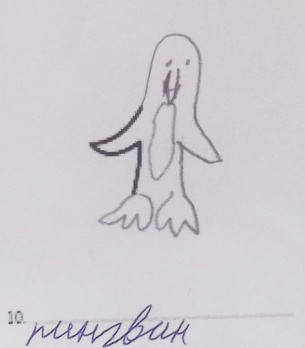 10. пингван